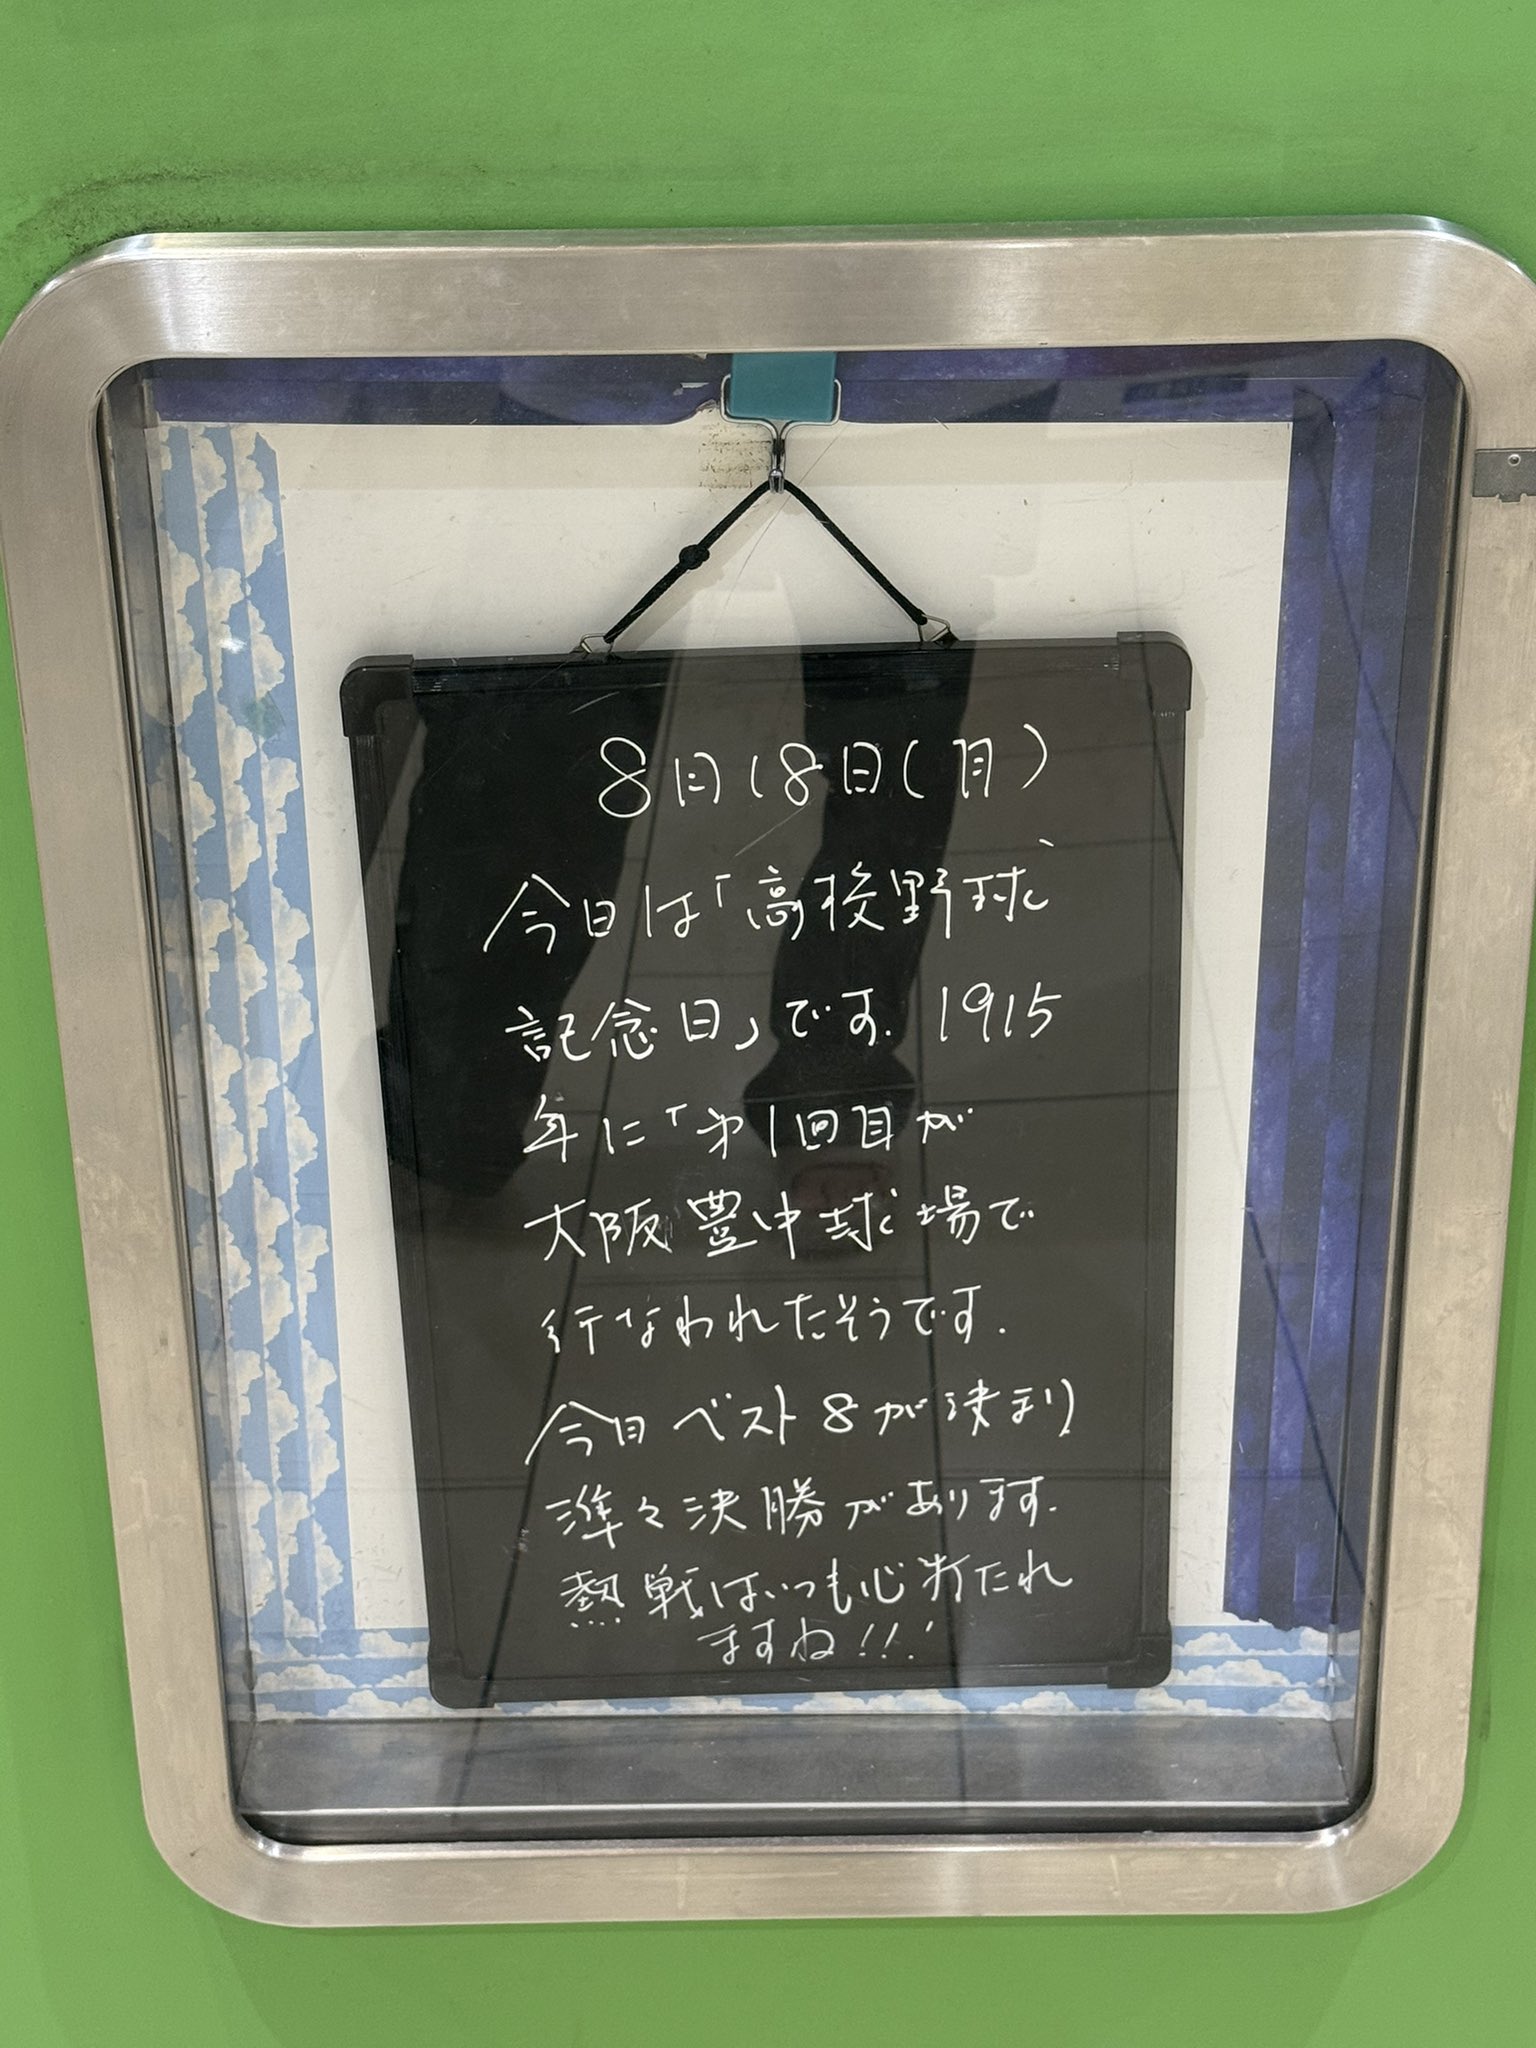 8月18日(月)
今日は「高校野球
記念日」です. 1915
年に「第1回目が
大阪豊中球場で
行なわれたそうです.
今日ベスト8が決まり
準々決勝があります.
熱戦はいつも心打たれ
ますね!!!